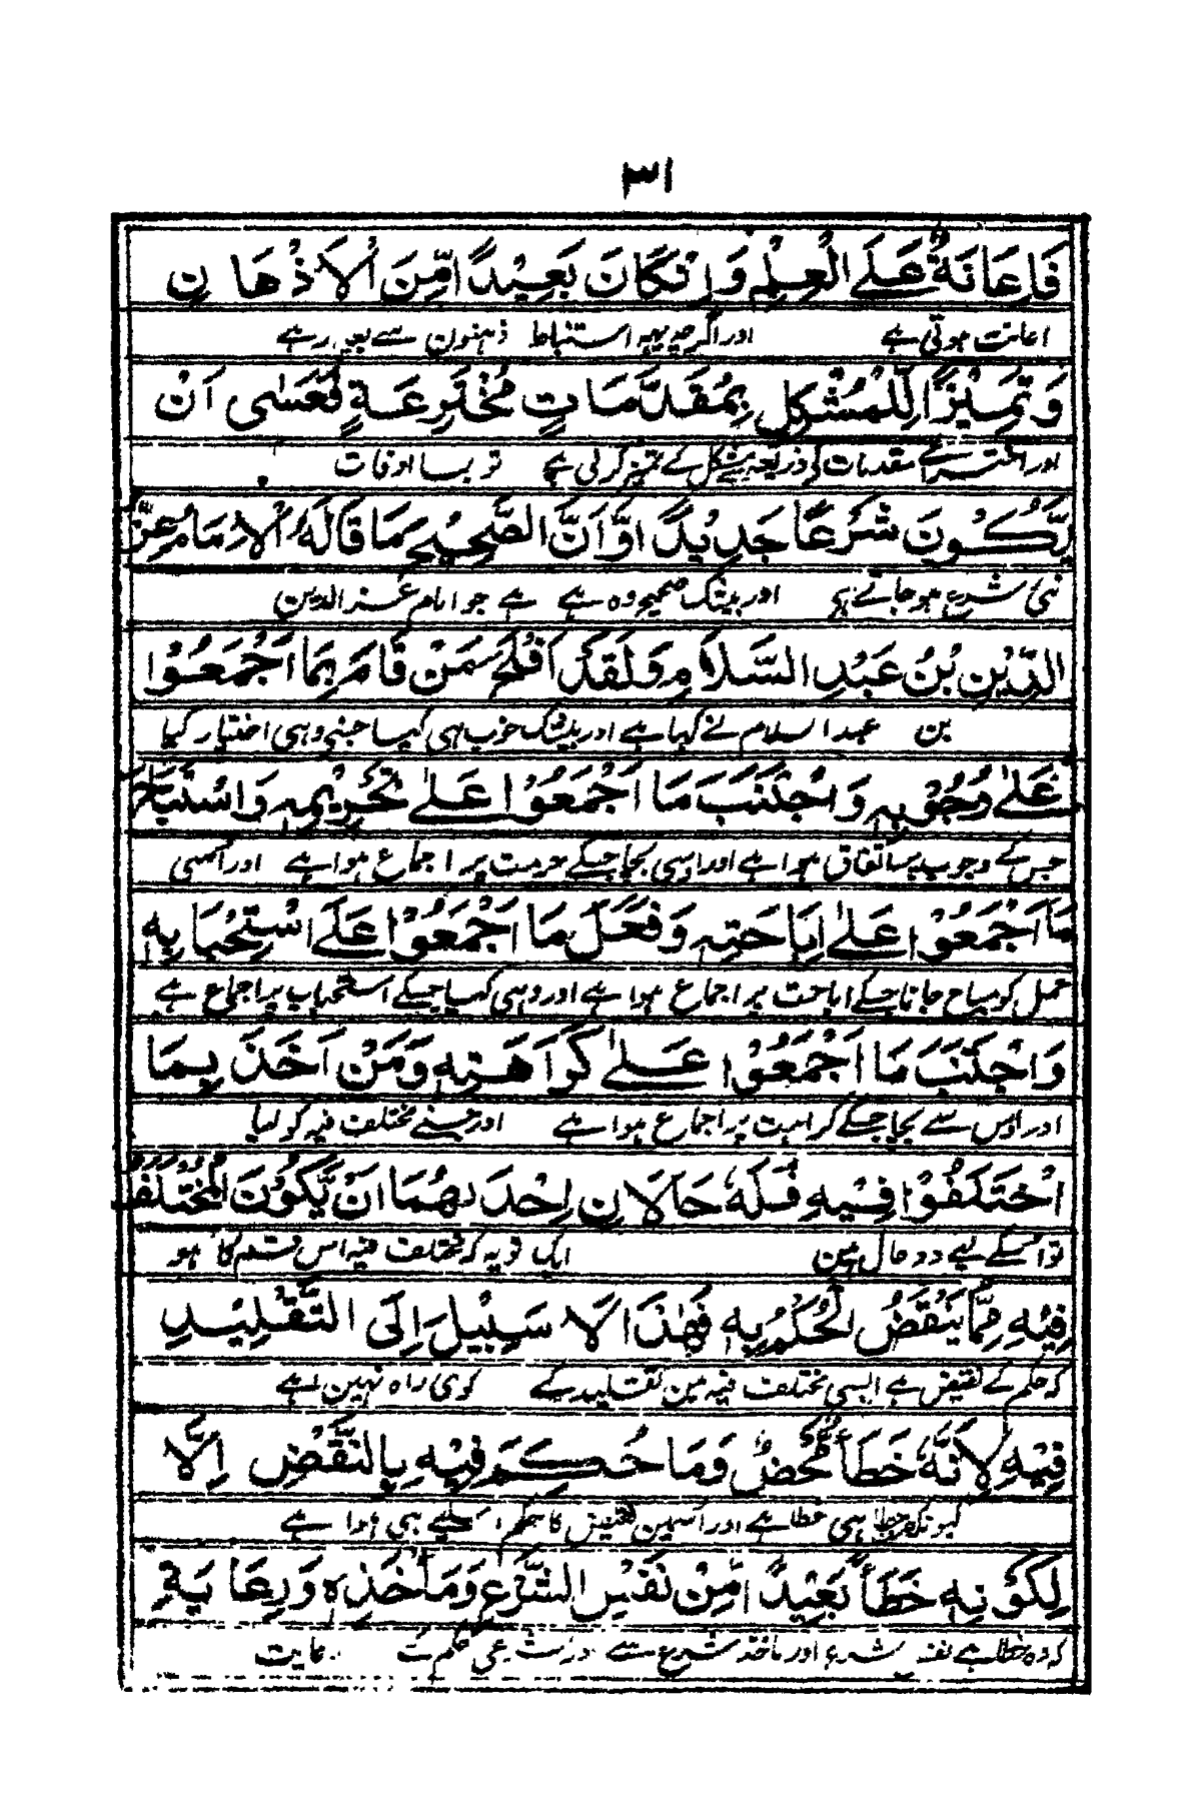 ۳۱
فَاِعَانَةٌ عَلَى الْعِلْمِ وَاِنْ كَانَ بَعِيْدًا مِّنَ الْاَذْهَانِ
اعانت ہوتی ہے اور اگرچہ یہہ استنباط ذہنون سے بعید رہے
وَتَمْيِيْزًا لِّلْمُشْكِلِ بِمُقَدَّمَاتٍ مُخْتَرِعَةٍ فَعَسٰى اَنْ
اور مقدمات کی ذریعہ سے مشکل کے تمیز کرلی ہے تو بسا اوقات
يَّكُوْنَ شَرْعًا جَدِيْدًا وَّاَنَّ الصَّحِيْحَ مَا قَالَهُ الْاِمَامُ عِزُّ
نئی شرع ہو جاتے ہے اور بیشک صحیح وہ ہے ہے جو امام عزالدین
الدِّيْنِ بْنُ عَبْدِ السَّلَامِ وَلَقَدْ اَفْلَحَ مَنْ قَامَ بِمَا اَجْمَعُوْا
بن عبد السلام نے کہا ہے اور بیشک خوب ہی کیا جسنے وہی اختیار کیا
عَلٰى وُجُوْبِهٖ وَاجْتَنَبَ مَا اَجْمَعُوْا عَلٰى تَحْرِيْمِهٖ وَاسْتَبَاحَ
جس کے وجوب پر اتفاق ہوا ہے اور اوسی بچا جسکے حرمت پر اجماع ہوا ہے اور اسی
مَا اَجْمَعُوْا عَلٰى اِبَاحَتِهٖ وَفَعَلَ مَا اَجْمَعُوْا عَلَى اسْتِحْبَابِهٖ
عمل کو مباح جانا جسکے اباحت پر اجماع ہوا ہے اور وہی کیا جسکے استحباب پر اجماع ہے
وَاجْتَنَبَ مَا اَجْمَعُوْا عَلٰى كَرَاهَتِهٖ وَمَنْ اَخَذَ بِمَا
اور اوس سے بچا جسکے کراہت پر اجماع ہوا ہے اور جسنے مختلف فیہ کو لیا
اخْتَلَفُوْا فِيْهِ فَلَهٗ حَالَانِ اِحْدٰهُمَا اَنْ يَّكُوْنَ الْمُخْتَلَفُ
تو اسکے لیے دو حال ہین ایک تو یہ کہ مختلف فیہ اس قسم کا ہو
فِيْهِ مِمَّا يَنْقُضُ الْحُكْمَ بِهٖ فَهٰذَا لَا سَبِيْلَ اِلَى التَّقْلِيْدِ
کہ حکم کے نقیض ہے ایسی مختلف فیہ مین تقلید کے کوی راہ نہین ہے
فِيْهِ لِاَنَّهٗ خَطَأٌ مَّحْضٌ وَمَا حُكِمَ فِيْهِ بِالنَّقْضِ اِلَّا
کیونکہ خطا ہی خطا ہے اور اسمین نقیض کا حکم اسلیے ہی ہوا ہے
لِكَوْنِهٖ خَطَأً بَعِيْدًا مِّنْ نَفْسِ الشَّرْعِ وَمَأْخَذِهٖ وَرِعَايَةِ
کہ وہ خطا ہے نفس شرع اور ماخذ شرع سے